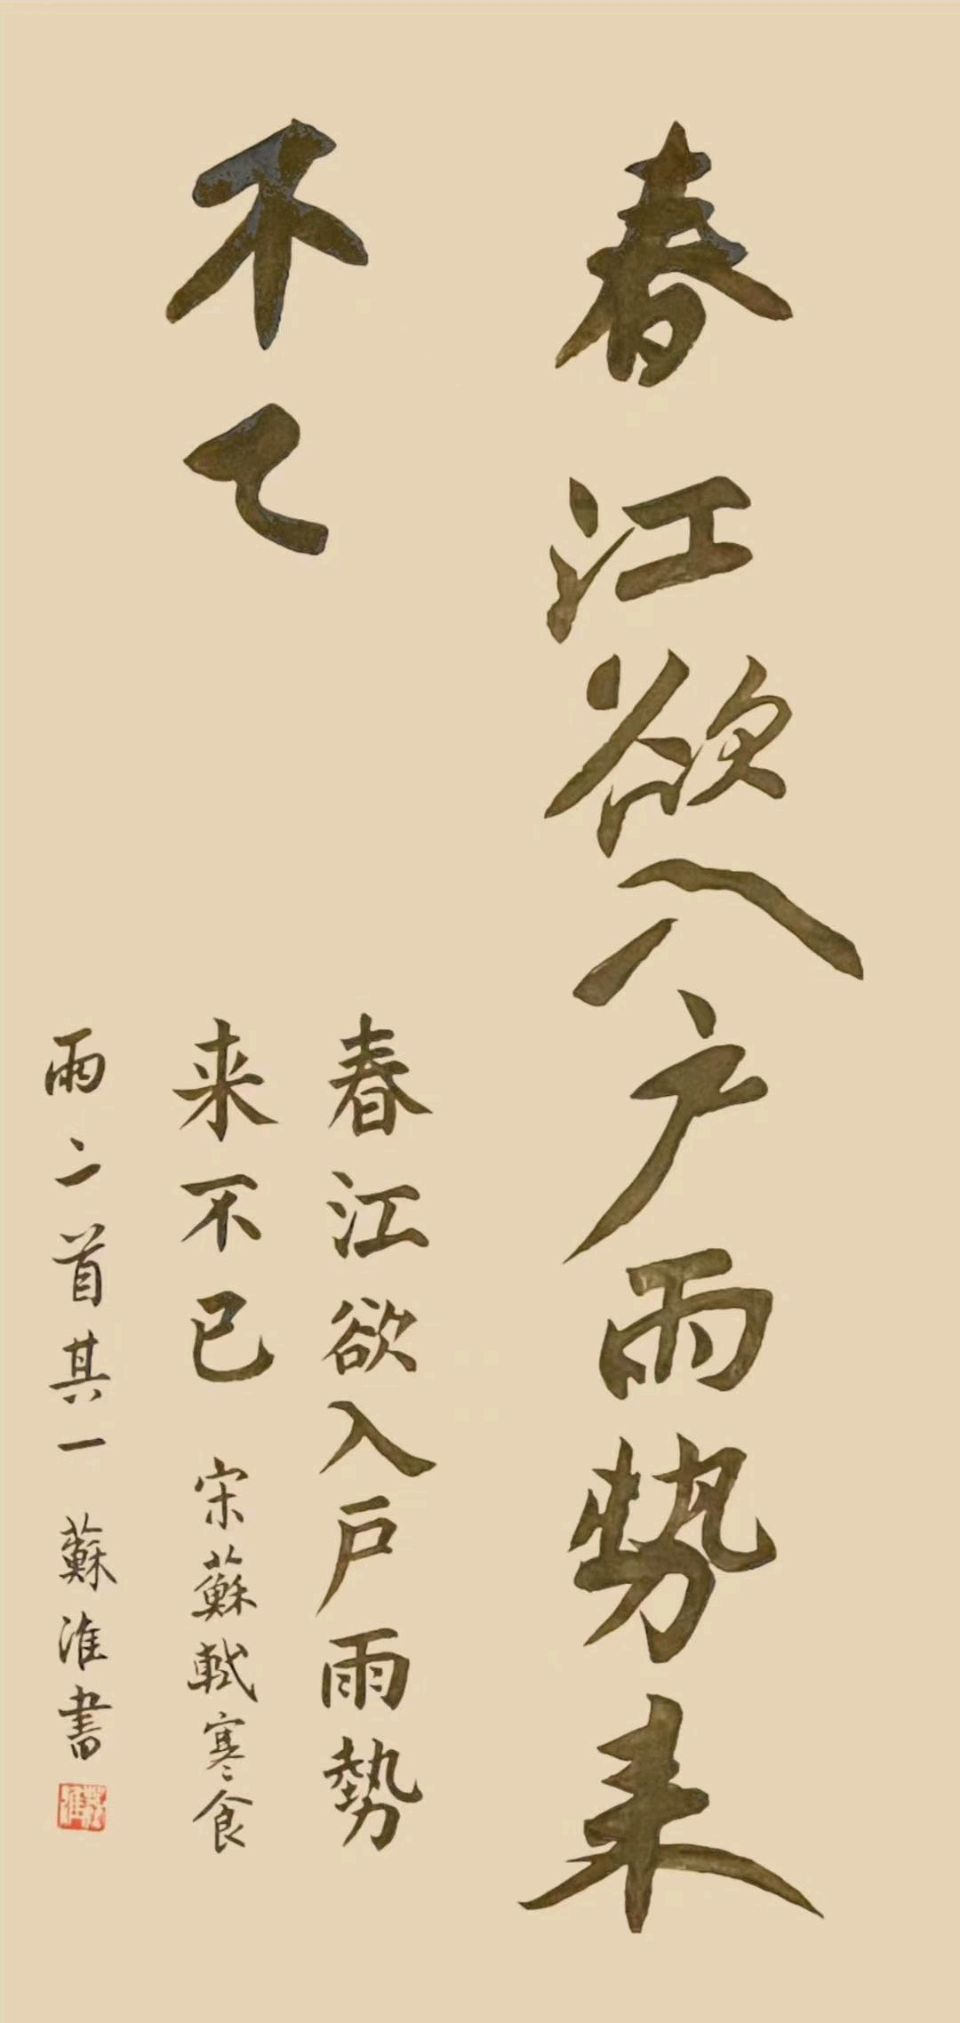 春江欲入户雨势来
不已
春江欲入戶雨勢
来不已 宋蘇軾寒食
雨二首其一 蘇淮書